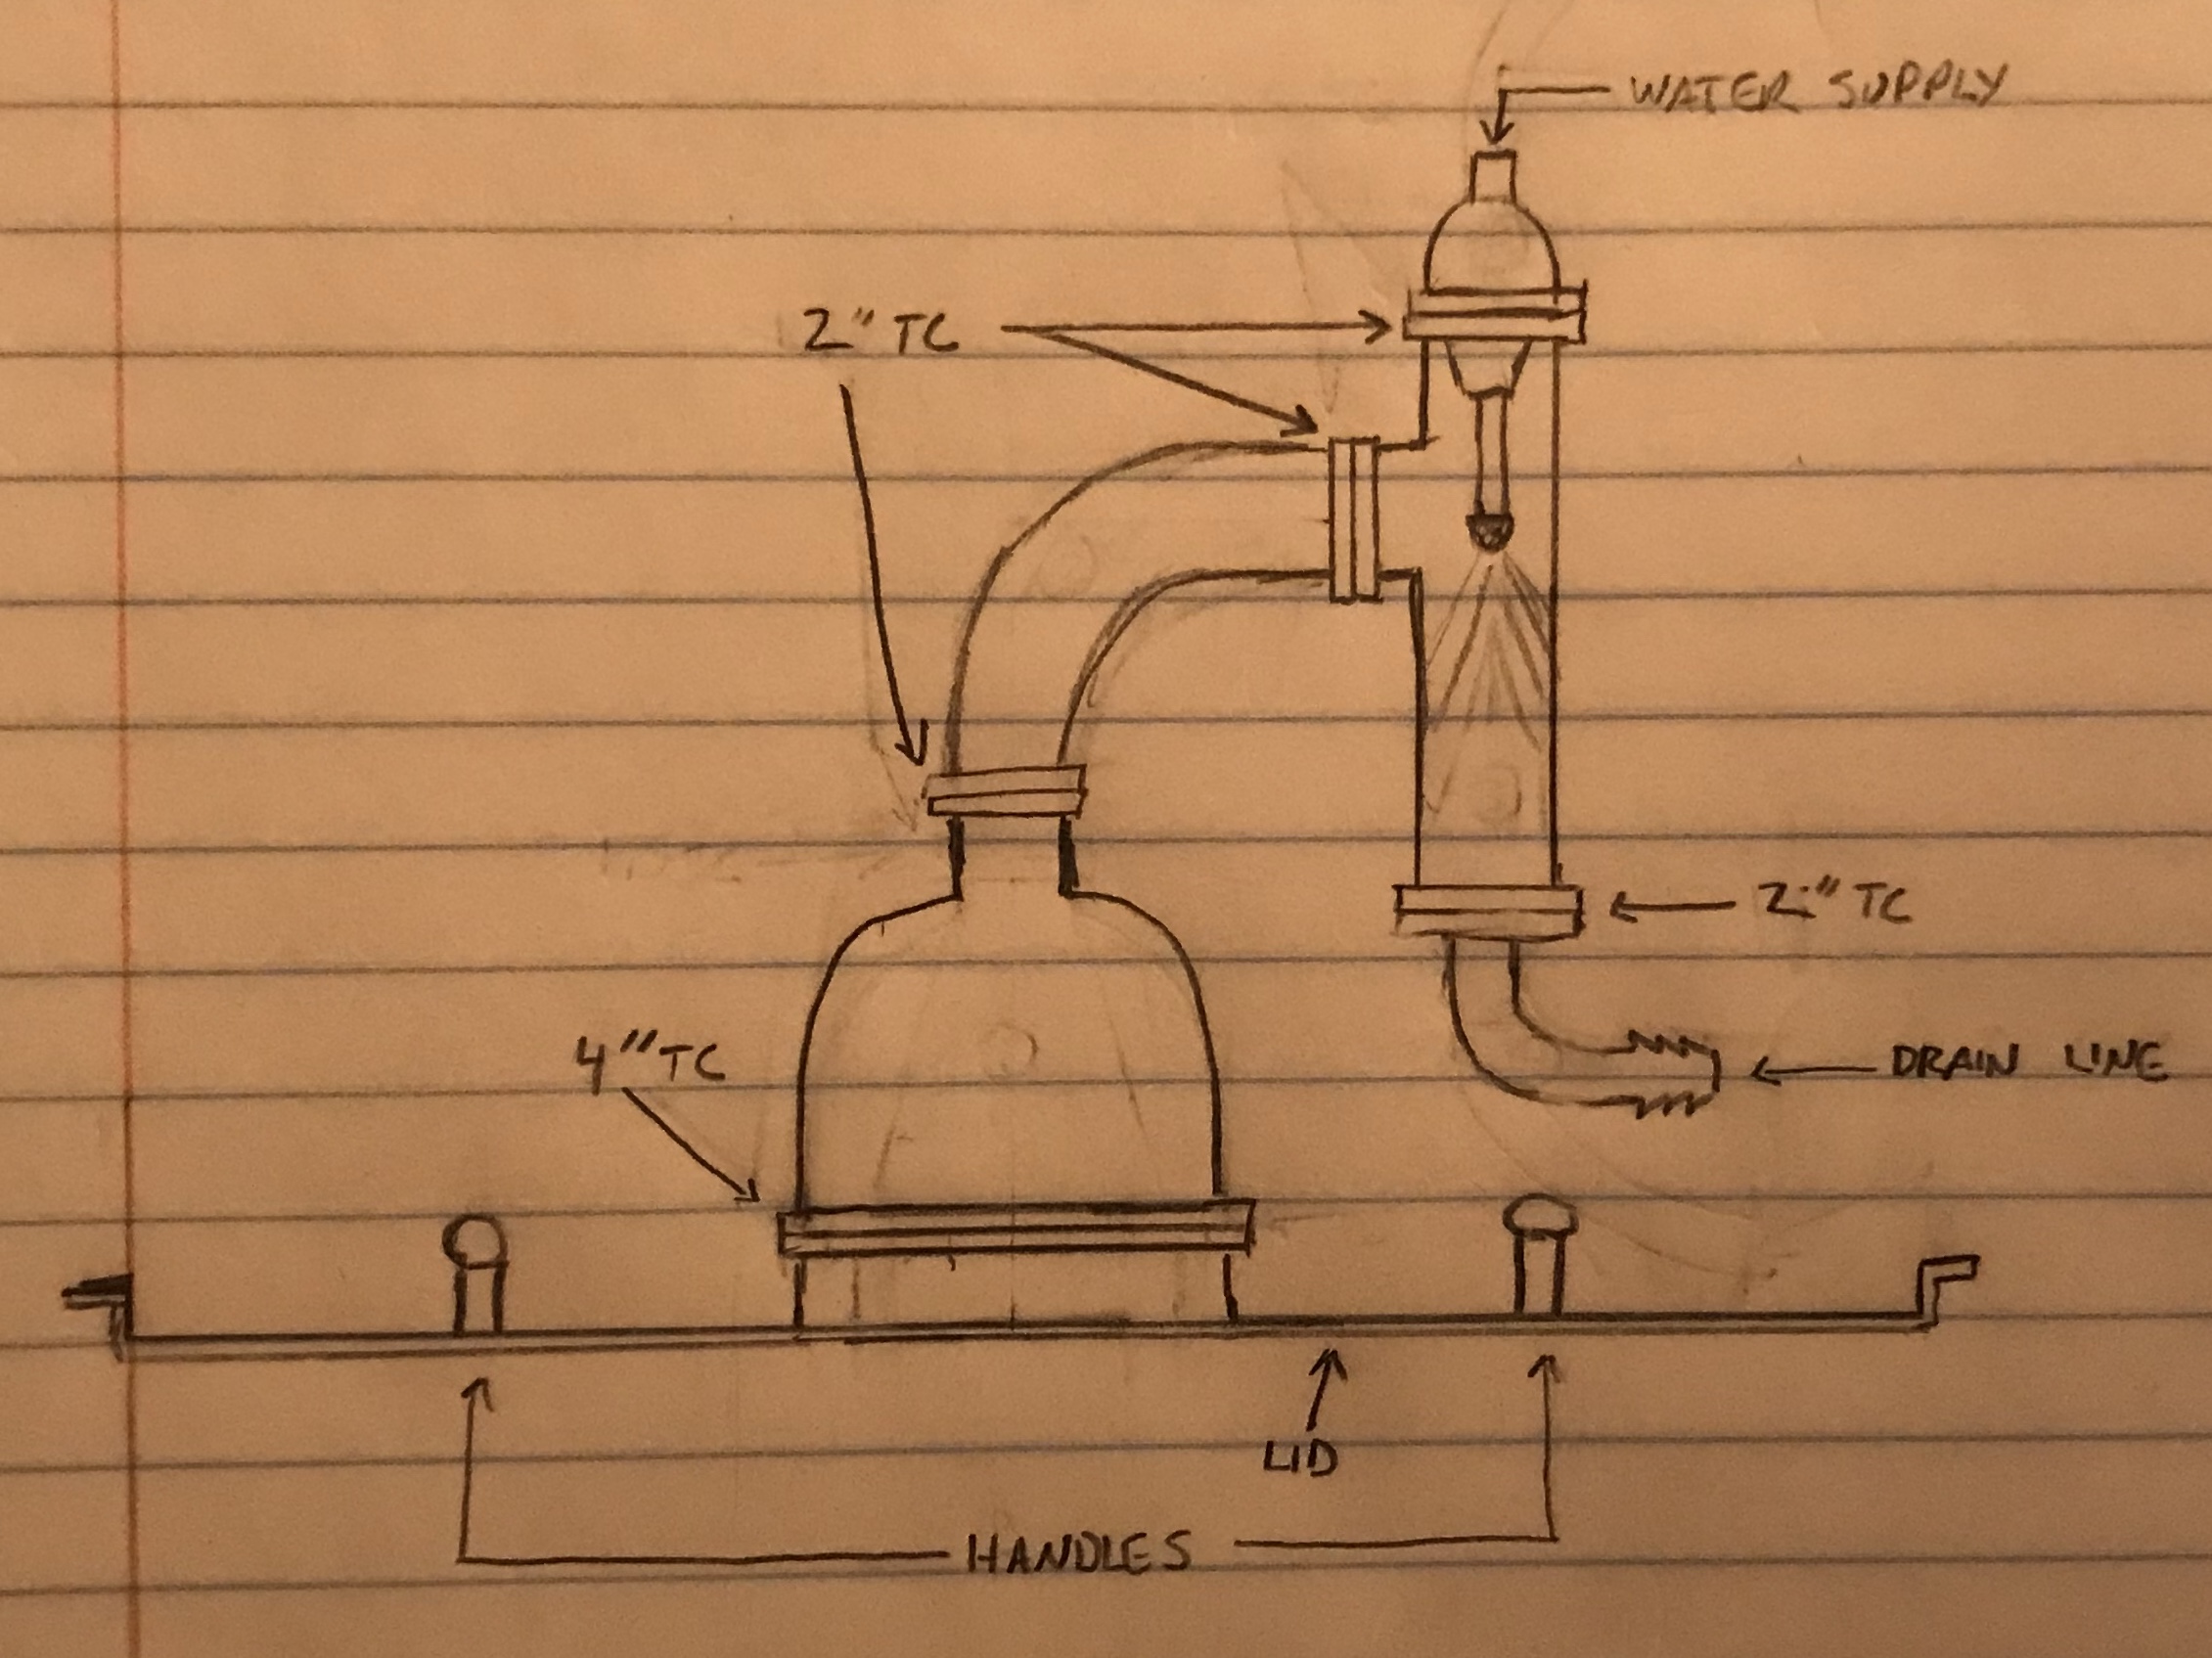 WATER SUPPLY
2" TC
2" TC
4" TC
DRAIN LINE
LID
HANDLES